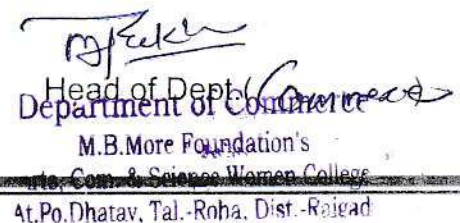 Head of Dept (Commerce)
Department of Commerce
M.B.More Foundation's
Arts, Com. & Science Women College
At.Po.Dhatav, Tal.-Roha, Dist.-Raigad